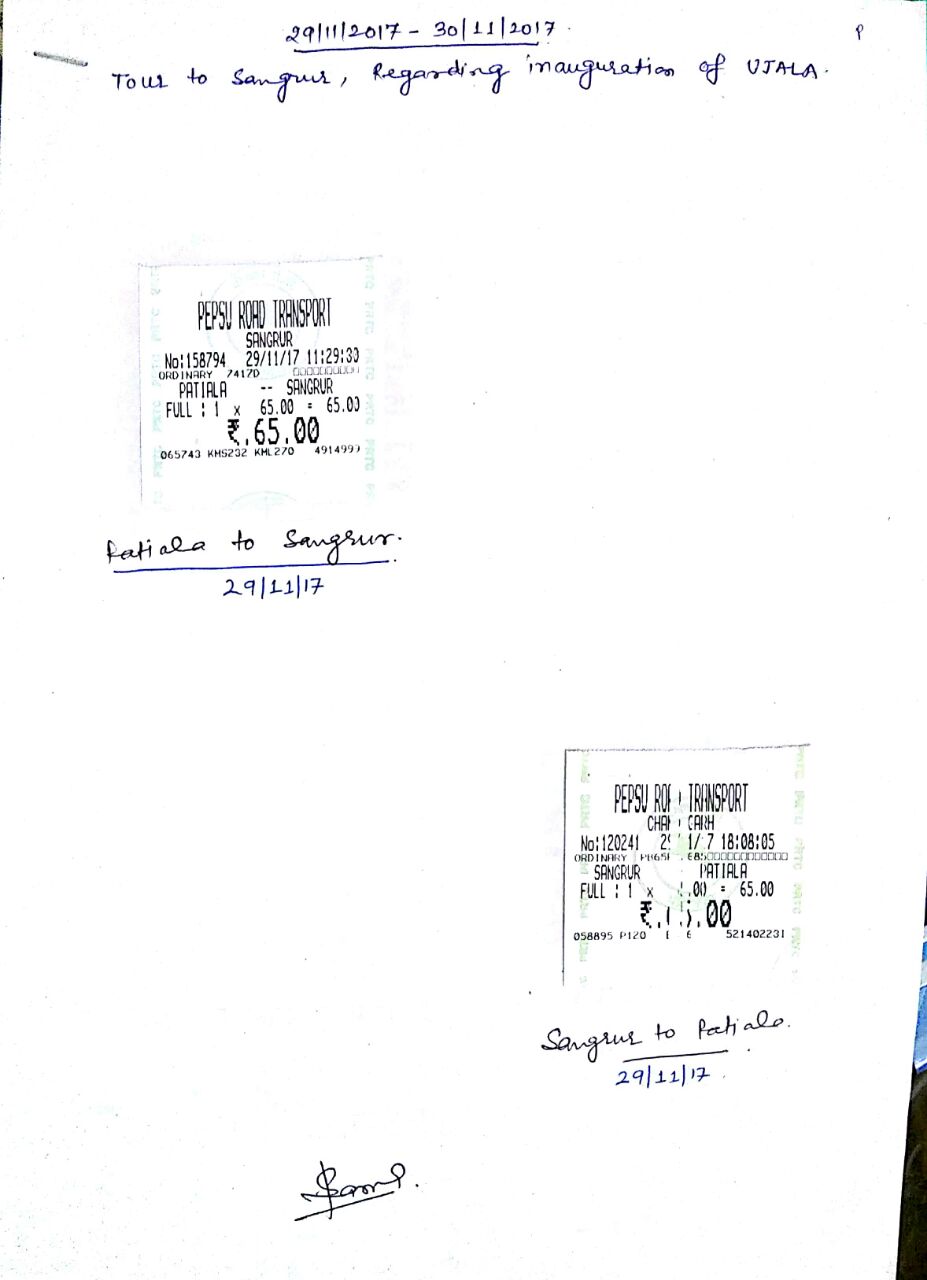 29/11/2017 - 30/11/2017.
Tour to Sangrur, Regarding inauguration of UJALA.
PEPSU ROAD TRANSPORT
SANGRUR
No:158794 29/11/17 11:29:33
ORDINARY 7417D
PATIALA -- SANGRUR
FULL : 1 x 65.00 = 65.00
₹.65.00
065743 KMS232 KML270 4914999
Patiala to Sangrur.
29/11/17
PEPSU TRANSPORT
No:120241 18:08:05
ORDINARY
SANGRUR PATIALA
FULL : 1 x .00 = 65.00
058895 P120 521402231
Sangrur to Patiala.
29/11/17.